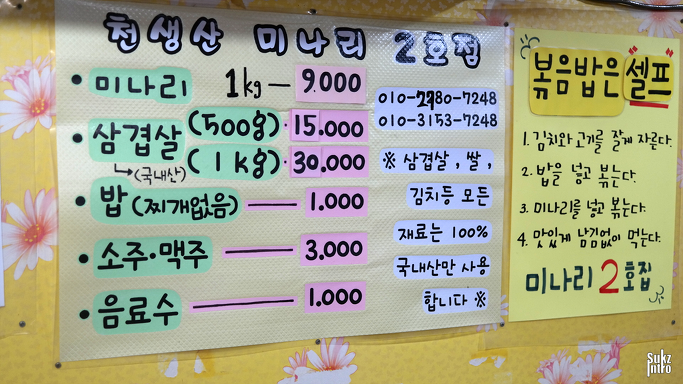 천생산 미나리 2호점
• 미나리 1kg — 9.000
• 삼겹살 (500g) · 15.000
(국내산) (1kg) · 30.000
• 밥 (찌개없음) — 1.000
• 소주·맥주 — 3.000
• 음료수 — 1.000
010-2780-7248
010-3153-7248
※ 삼겹살, 쌀,
김치등 모든
재료는 100%
국내산만 사용
합니다 ※
볶음밥은 "셀프"
1. 김치와 고기를 잘게 자른다.
2. 밥을 넣고 볶는다.
3. 미나리를 넣고 볶는다.
4. 맛있게 남김없이 먹는다.
미나리 2호집
Sukz
Intro